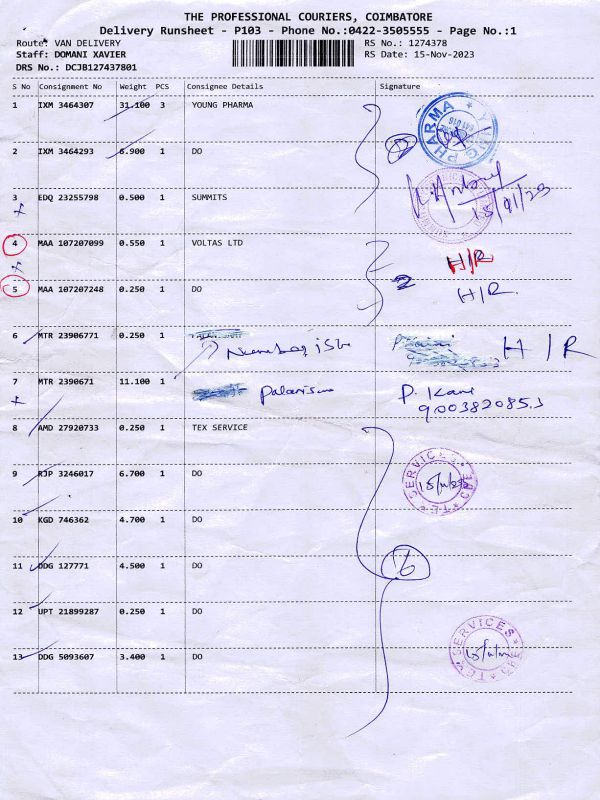 THE PROFESSIONAL COURIERS, COIMBATORE
Delivery Runsheet - P103 - Phone No.:0422-3505555 - Page No.:1
Route: VAN DELIVERY RS No.: 1274378
Staff: DOMANI XAVIER RS Date: 15-Nov-2023
DRS No.: DCJB127437801
S No Consignment No Weight PCS Consignee Details Signature
1 IXM 3464307 31.100 3 YOUNG PHARMA
2 IXM 3464293 6.900 1 DO
3 EDQ 23255798 0.500 1 SUMMITS
4 MAA 107207099 0.550 1 VOLTAS LTD H/R
5 MAA 107207248 0.250 1 DO 2 H/R
6 MTR 23906771 0.250 1 H/R
7 MTR 2390671 11.100 1 P. Kani
8 AMD 27920733 0.250 1 TEX SERVICE
9 RJP 3246017 6.700 1 DO
10 KGD 746362 4.700 1 DO
11 DDG 127771 4.500 1 DO
12 UPT 21899287 0.250 1 DO
13 DDG 5093607 3.400 1 DO